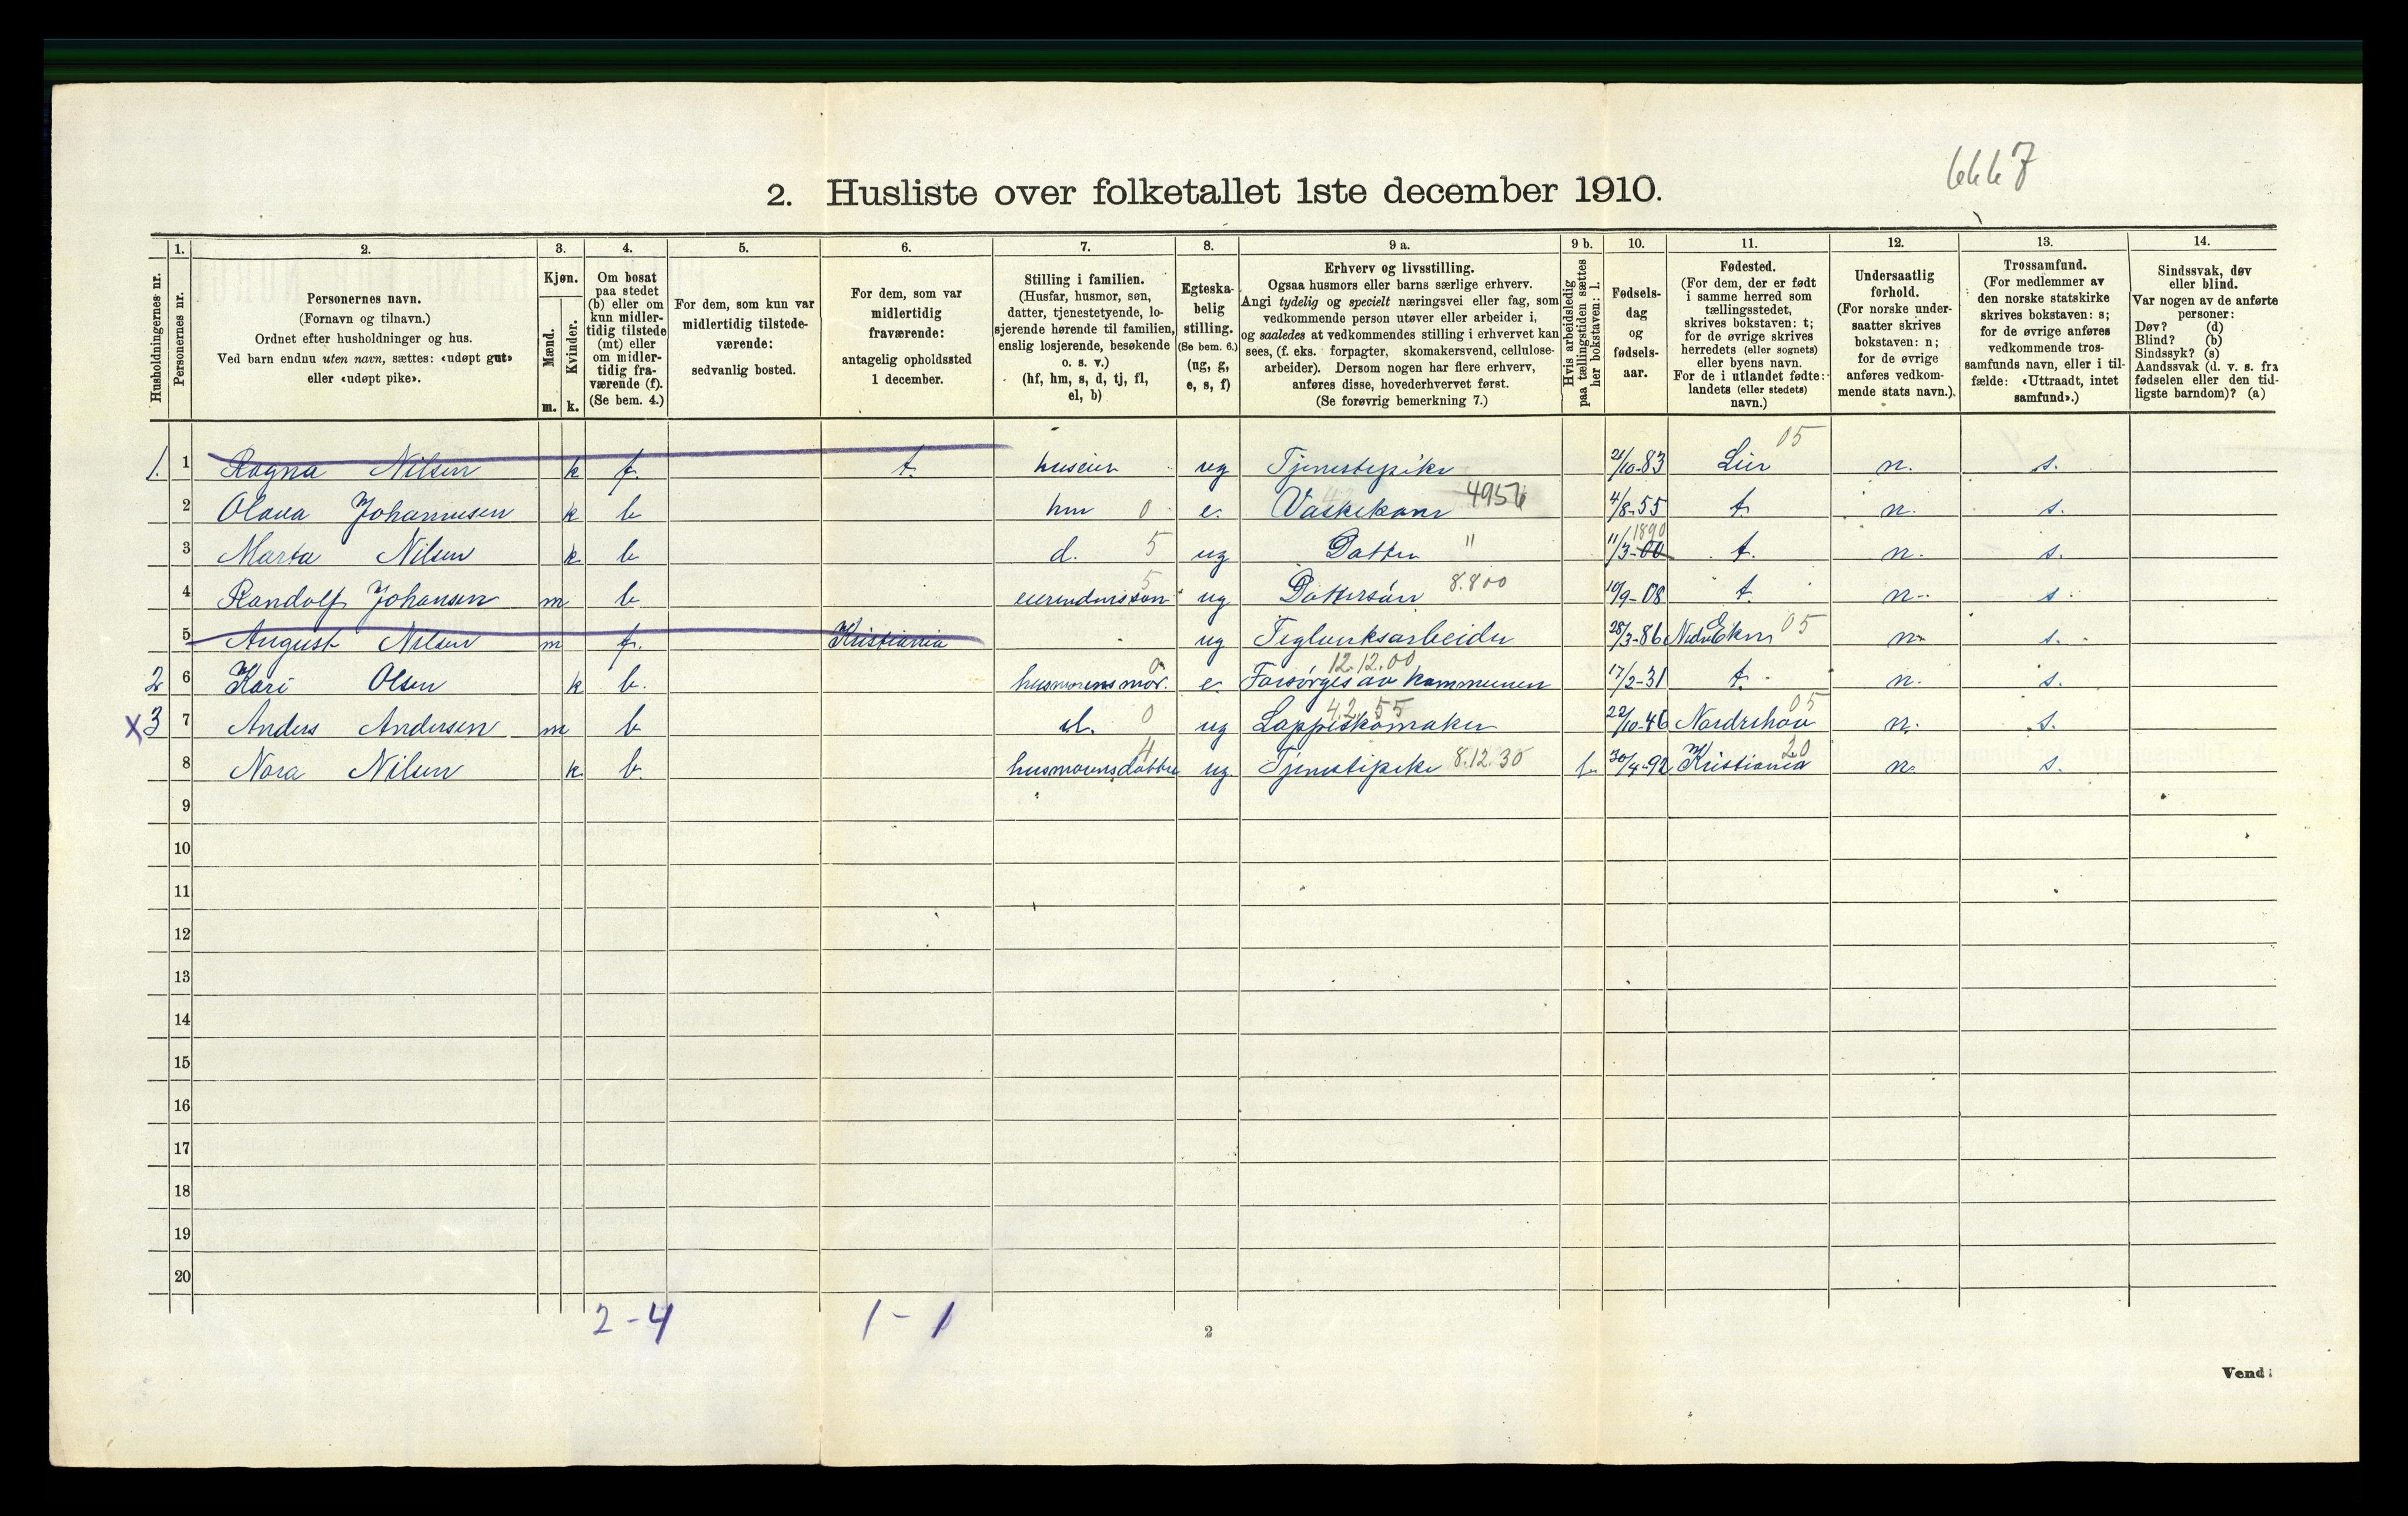 6667
2. Husliste over folketallet 1ste december 1910.
Husholdningernes nr.
1. Personernes nr.
2. Personernes navn.
(Fornavn og tilnavn.)
Ordnet efter husholdninger og hus.
Ved barn endnu uten navn, sættes: «udøpt gut»
eller «udøpt pike».
3. Kjøn.
Mænd. Kvinder.
m. k.
4. Om bosat
paa stedet
(b) eller om
kun midler-
tidig tilstede
(mt) eller
om midler-
tidig fra-
værende (f).
(Se bem. 4.)
5. For dem, som kun var
midlertidig tilstede-
værende:
sedvanlig bosted.
6. For dem, som var
midlertidig
fraværende:
antagelig opholdssted
1 december.
7. Stilling i familien.
(Husfar, husmor, søn,
datter, tjenestetyende, lo-
sjerende hørende til familien,
enslig losjerende, besøkende
o. s. v.)
(hf, hm, s, d, tj, fl,
el, b)
8. Egteska-
belig
stilling.
(Se bem. 6.)
(ug, g,
e, s, f)
9 a. Erhverv og livsstilling.
Ogsaa husmors eller barns særlige erhverv.
Angi tydelig og specielt næringsvei eller fag, som
vedkommende person utøver eller arbeider i,
og saaledes at vedkommendes stilling i erhvervet kan
sees, (f. eks. forpagter, skomakersvend, cellulose-
arbeider). Dersom nogen har flere erhverv,
anføres disse, hovederhvervet først.
(Se forøvrig bemerkning 7.)
9 b. Hvis arbeidsledig
paa tællingstiden sættes
her bokstaven: l.
10. Fødsels-
dag
og
fødsels-
aar.
11. Fødested.
(For dem, der er født
i samme herred som
tællingsstedet,
skrives bokstaven: t;
for de øvrige skrives
herredets (eller sognets)
eller byens navn.
For de i utlandet fødte:
landets (eller stedets)
navn.)
12. Undersaatlig
forhold.
(For norske under-
saatter skrives
bokstaven: n;
for de øvrige
anføres vedkom-
mende stats navn.)
13. Trossamfund.
(For medlemmer av
den norske statskirke
skrives bokstaven: s;
for de øvrige anføres
vedkommende tros-
samfunds navn, eller i til-
fælde: «Uttraadt, intet
samfund».)
14. Sindssvak, døv
eller blind.
Var nogen av de anførte
personer:
Døv? (d)
Blind? (b)
Sindssyk? (s)
Aandssvak (d. v. s. fra
fødselen eller den tid-
ligste barndom)? (a)
1. 1 Ragna Nilsen k f. t. huseier ug Tjenestepike 21/10-83 Lier 05 n. s.
2 Olava Johannesen k b hm 0 e. Vaskekone 4956 4/8-55 t. n. s.
3 Marta Nilsen k b d. 5 ug Datter " 11/3-00 1890 t. n. s.
4 Randolf Johansen m b eierendens søn 5 ug Dattersøn 8.800 10/9-08 t. n. s.
5 August Nilsen m f. Kristiania ug Teglverksarbeider 28/3-86 Nedre Eker 05 n. s.
2 6 Kari Olsen k b. husmorens mor. 0 e. Forsørges av kommunen 12.12.00 17/2-31 t. n. s.
x 3 7 Anders Andersen m b el. 0 ug Lappeskomaker 42.55 22/10-46 Norderhov 05 n. s.
8 Nora Nilsen k b. husmorens datter 4 ug. Tjenestepike 8.12.30 l. 30/4-92 Kristiania 20 n. s.
9
10
11
12
13
14
15
16
17
18
19
20
2-4 1-1
2
Vend!